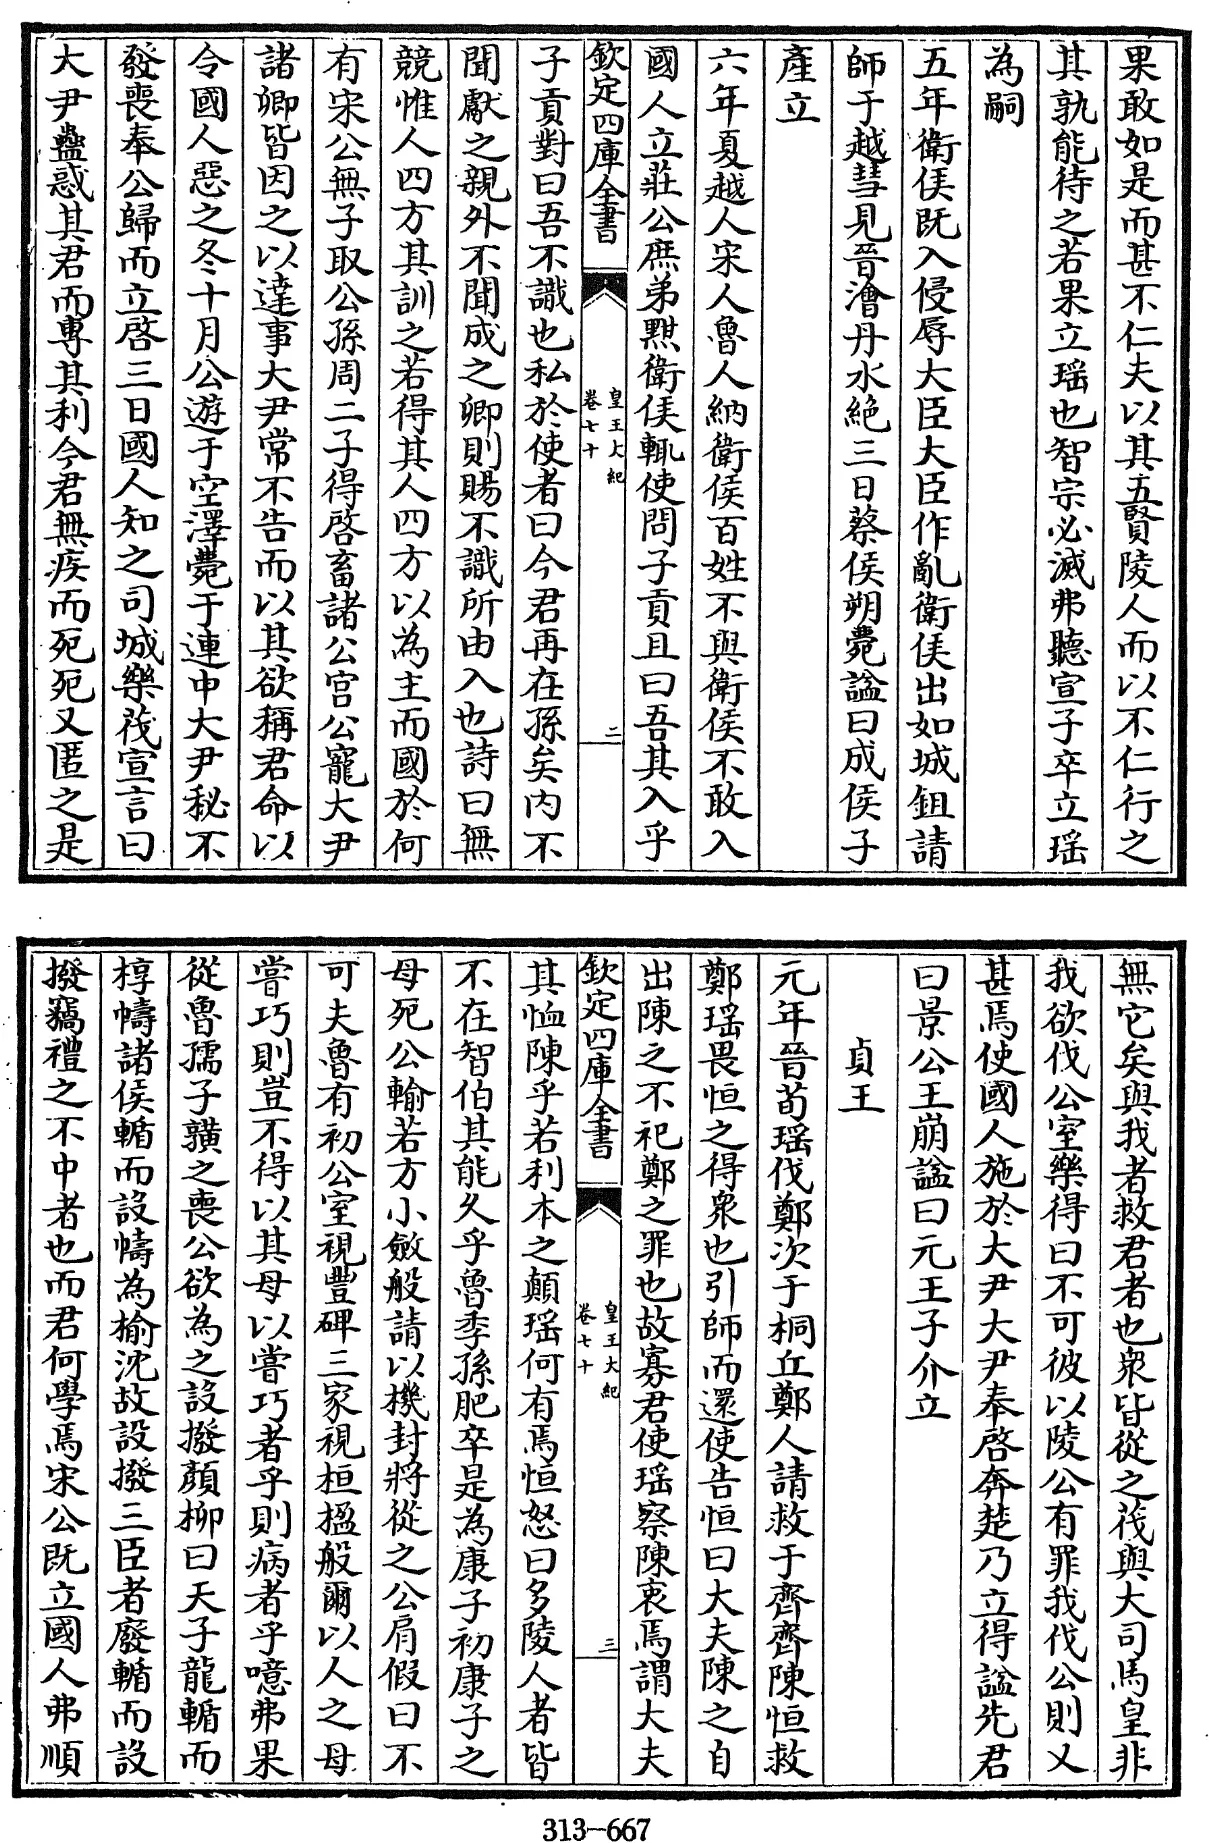 果敢如是而甚不仁夫以其五賢陵人而以不仁行之
其孰能待之若果立瑶也智宗必滅弗聽宣子卒立瑶
為嗣
五年衛侯既入侵辱大臣大臣作亂衛侯出如城鉏請
師于越彗見晉澮丹水絶三日蔡侯朔薨諡曰成侯子
產立
六年夏越人宋人魯人納衛侯百姓不與衛侯不敢入
國人立莊公庶弟黚衛侯輒使問子貢且曰吾其入乎
欽定四庫全書
皇王大紀
卷七十
二
子貢對曰吾不識也私於使者曰今君再在孫矣内不
聞獻之親外不聞成之卿則賜不識所由入也詩曰無
競惟人四方其訓之若得其人四方以為主而國於何
有宋公無子取公孫周二子得啓畜諸公宫公寵大尹
諸卿皆因之以達事大尹常不告而以其欲稱君命以
令國人惡之冬十月公遊于空澤薨于連中大尹秘不
發喪奉公歸而立啓三日國人知之司城樂茷宣言曰
大尹蠱惑其君而專其利今君無疾而死死又匿之是
無它矣與我者救君者也衆皆從之茷與大司馬皇非
我欲伐公室樂得曰不可彼以陵公有罪我伐公則又
甚焉使國人施於大尹大尹奉啓奔楚乃立得諡先君
曰景公王崩諡曰元王子介立
貞王
元年晉荀瑶伐鄭次于桐丘鄭人請救于齊齊陳恒救
鄭瑶畏恒之得衆也引師而還使告恒曰大夫陳之自
出陳之不祀鄭之罪也故寡君使瑶察陳衷焉謂大夫
欽定四庫全書
皇王大紀
卷七十
三
其恤陳乎若利本之顛瑶何有焉恒怒曰多陵人者皆
不在智伯其能久乎魯季孫肥卒是為康子初康子之
母死公輸若方小斂般請以機封將從之公肩假曰不
可夫魯有初公室視豐碑三家視桓楹般爾以人之母
嘗巧則豈不得以其母以嘗巧者乎則病者乎噫弗果
從魯孺子䵃之喪公欲為之設撥顔柳曰天子龍輴而
椁幬諸侯輴而設幬為榆沈故設撥三臣者廢輴而設
撥竊禮之不中者也而君何學焉宋公既立國人弗順
313-667